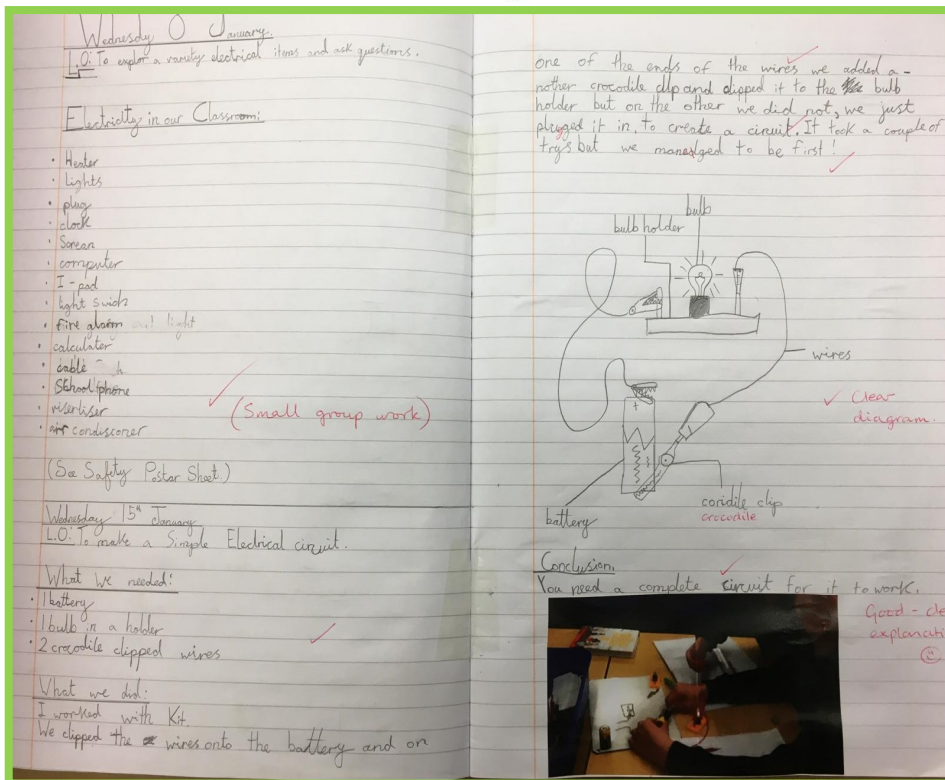 Wednesday January.
L.O: To explor a variety electrical items and ask questions.
Electricity in our Classroom:
· Heater
· Lights
· plug
· clock
· Screan
· computer
· I-pad
· light swich
· fire alarm light
· calculater
· cable
· School phone
· viserliser
· air condisconer
(Small group work)
(See Safety Postar Sheet.)
Wednesday 15th January
L.O: To make a Simple Electrical circuit.
What we needed:
· 1 battery
· 1 bulb in a holder
· 2 crocodile clipped wires
What we did:
I worked with Kit.
We clipped the wires onto the battery and on
one of the ends of the wires we added a-
nother crocodile clip and clipped it to the bulb
holder but on the other we did not, we just
plugged it in, to create a circuit. It took a couple of
trys but we manedged to be first!
bulb
bulb holder
wires
Clear
diagram.
+
battery
coridile clip
crocodile
Conclusion.
You need a complete circuit for it to work.
Good - cle
explanati